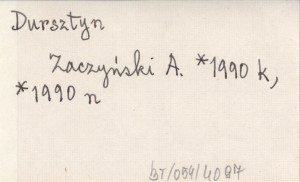 Dursztyn
Zaczyński A. *1990 k,
*1990 n
BT/054/4087